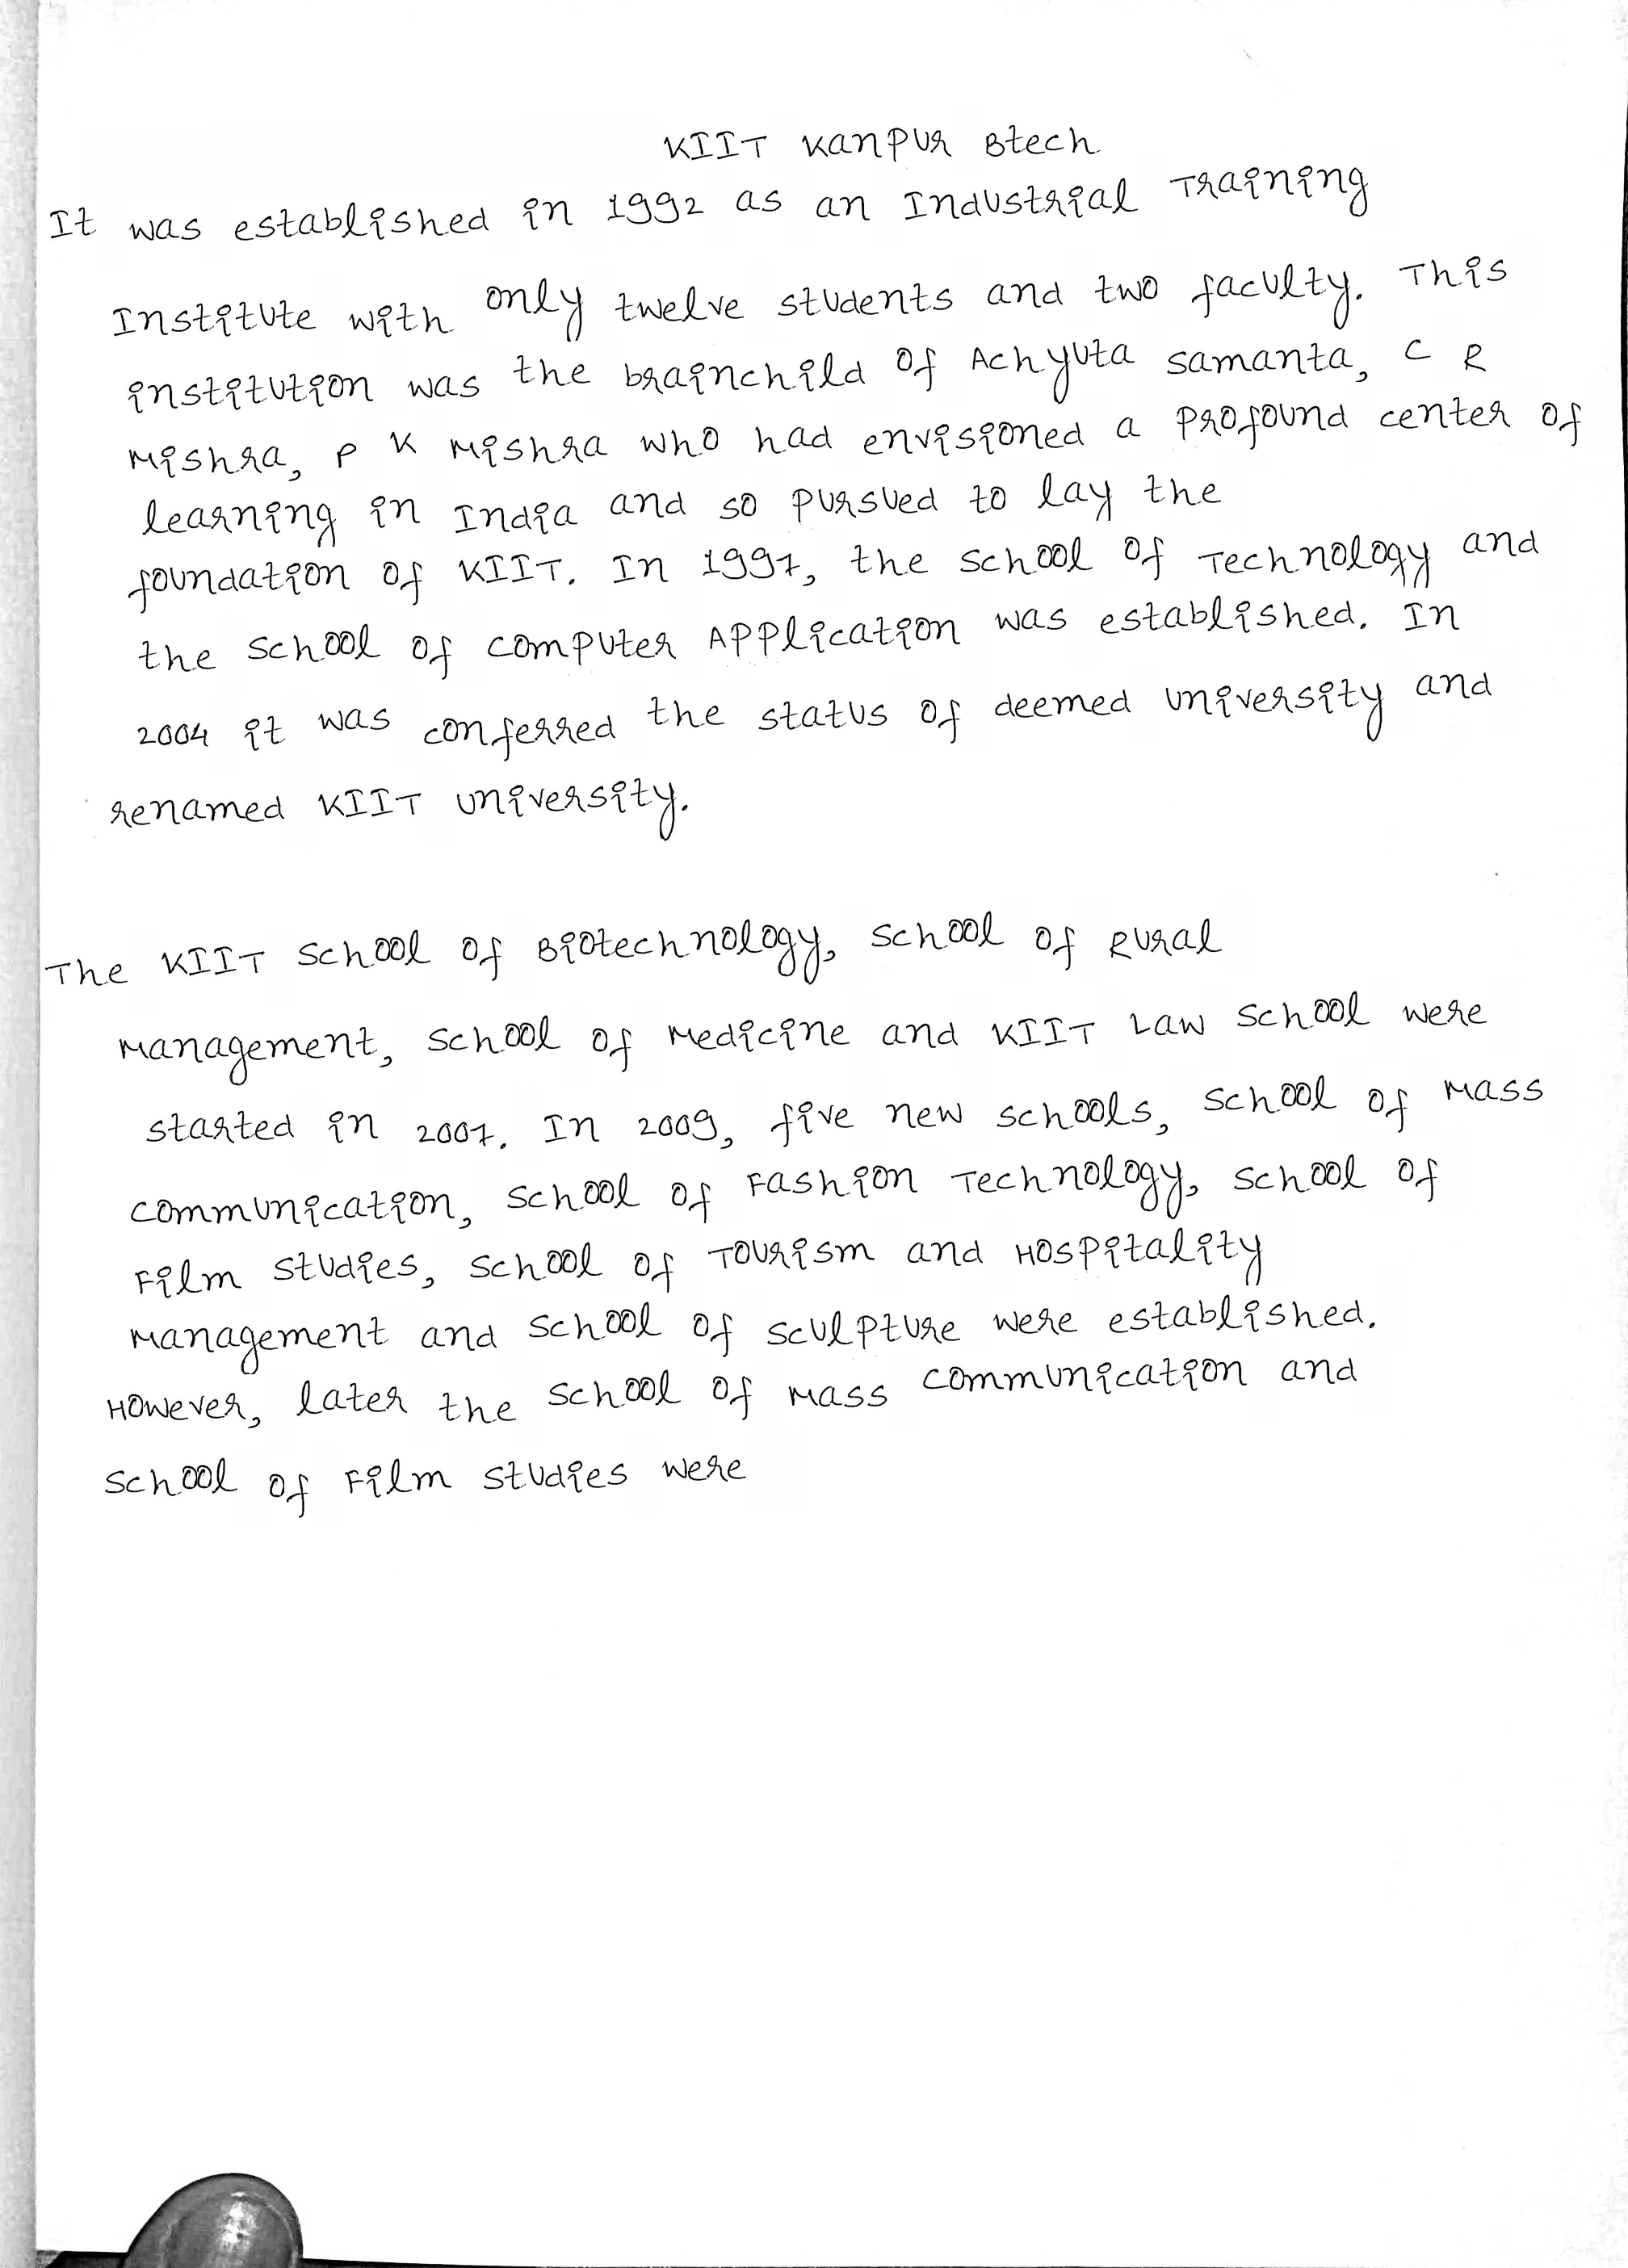 KIIT Kanpur Btech
It was established in 1992 as an Industrial Training
Institute with only twelve students and two faculty. This
institution was the brainchild of Achyuta Samanta, C R
Mishra, P K Mishra who had envisioned a profound center of
learning in India and so pursued to lay the
foundation of KIIT. In 1997, the School of Technology and
the School of Computer Application was established. In
2004 it was conferred the status of deemed university and
renamed KIIT University.
The KIIT School of Biotechnology, School of Rural
Management, School of Medicine and KIIT Law School were
started in 2007. In 2009, five new schools, School of Mass
Communication, School of Fashion Technology, School of
Film Studies, School of Tourism and Hospitality
Management and School of Sculpture were established.
However, later the School of Mass Communication and
School of Film Studies were